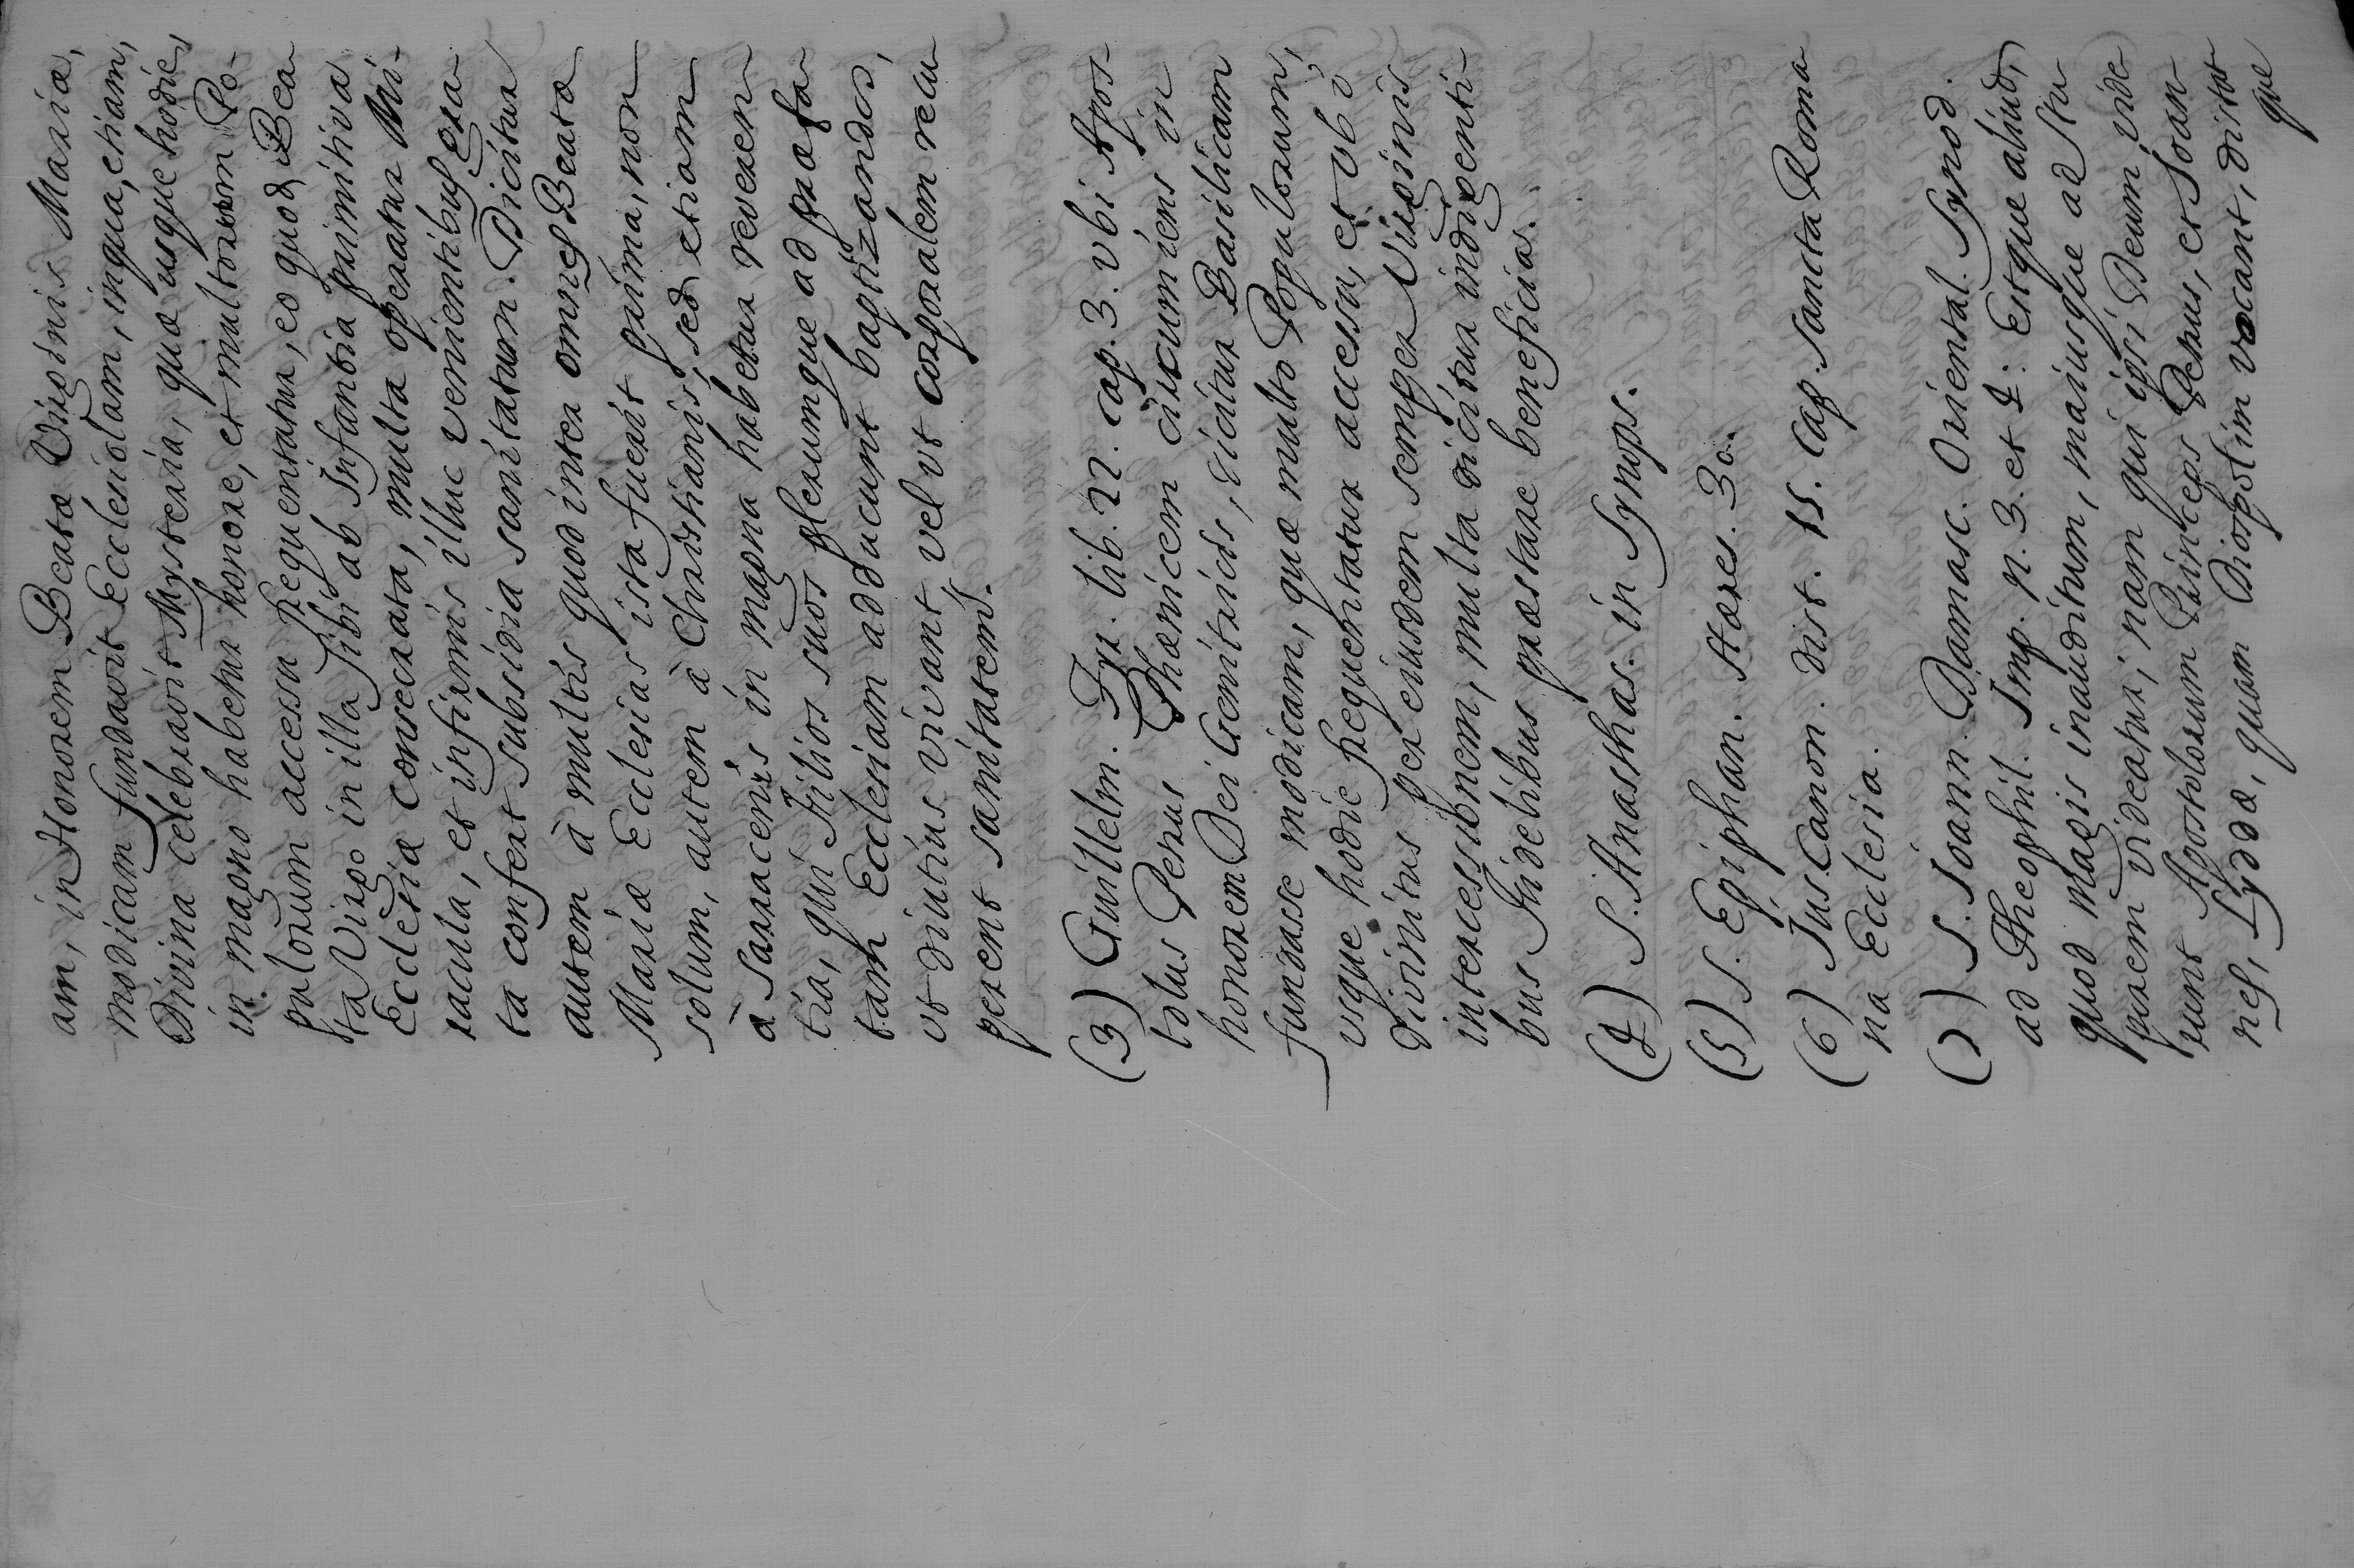 am, in Honorem Beatæ Virginis Mariæ,
modicam fundavit Ecclesiolam, in qua, etiam,
Divina celebravit Mysteria, quæ usque hodie,
in magno habetur honore, et multorum Po-
pulorum accessu frequentatur, eo quod Bea
ta Virgo in illa sibi ab Infantia primitiva
Ecclesiæ consecrata, multa operatur Mi-
racula, et infirmis illuc venientibus gra
ta confert subsidia sanitatum. Dicitur
autem à multis quod inter omnes Beatæ
Mariæ Ecclesias ista fuerit prima, non
solum, autem à Christianis, sed etiam
à Sarracenis in magna habetur reveren
tia, qui Filios suos plerumque ad præfa
tam Ecclesiam adducunt baptizandos,
vt diutius vivant vel vt corporalem recu
perent sanitatem.
(3) Guillelm. Tyr. lib. 22. cap. 3. vbi Apos
tolus Petrus Phænicem circumiens in
honorem Dei Genitricis, dicitur Basilicam
fundasse modicam, quæ multo Populorum,
vsque hodie frequentatur accessu, et vbi
divinitus per eiusdem semper Virginis
intercessionem, multa dicitur indigenti
bus Fidelibus præstare beneficia.
(4) S. Anasthas. in Synops.
(5) S. Epiphan. Hæres. 30.
(6) Jus Canon. dist. 15. Cap. Sancta Roma
na Ecclesia.
(7) S. Joann. Damasc. Oriental. Synod.
ad Theophil. Imp. n. 3. et 4: Estque aliud,
quod magis inauditum, maiusque ad stu
porem videatur; nam qui ipsi Deum vide
runt Apostolorum Princeps Petrus, et Joan
nes, Lyddæ, quam Diospolim vocant, ditio
que